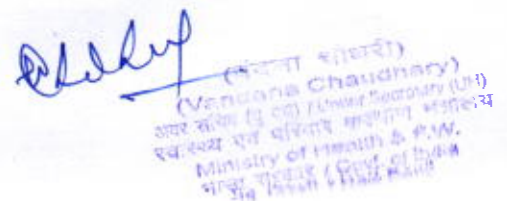 (वंदना चौधरी)
(Vandana Chaudhary)
अवर सचिव / Under Secretary
स्वास्थ्य एवं परिवार कल्याण मंत्रालय
Ministry of Health & F.W.
भारत सरकार / Govt. of India
नई दिल्ली / New Delhi